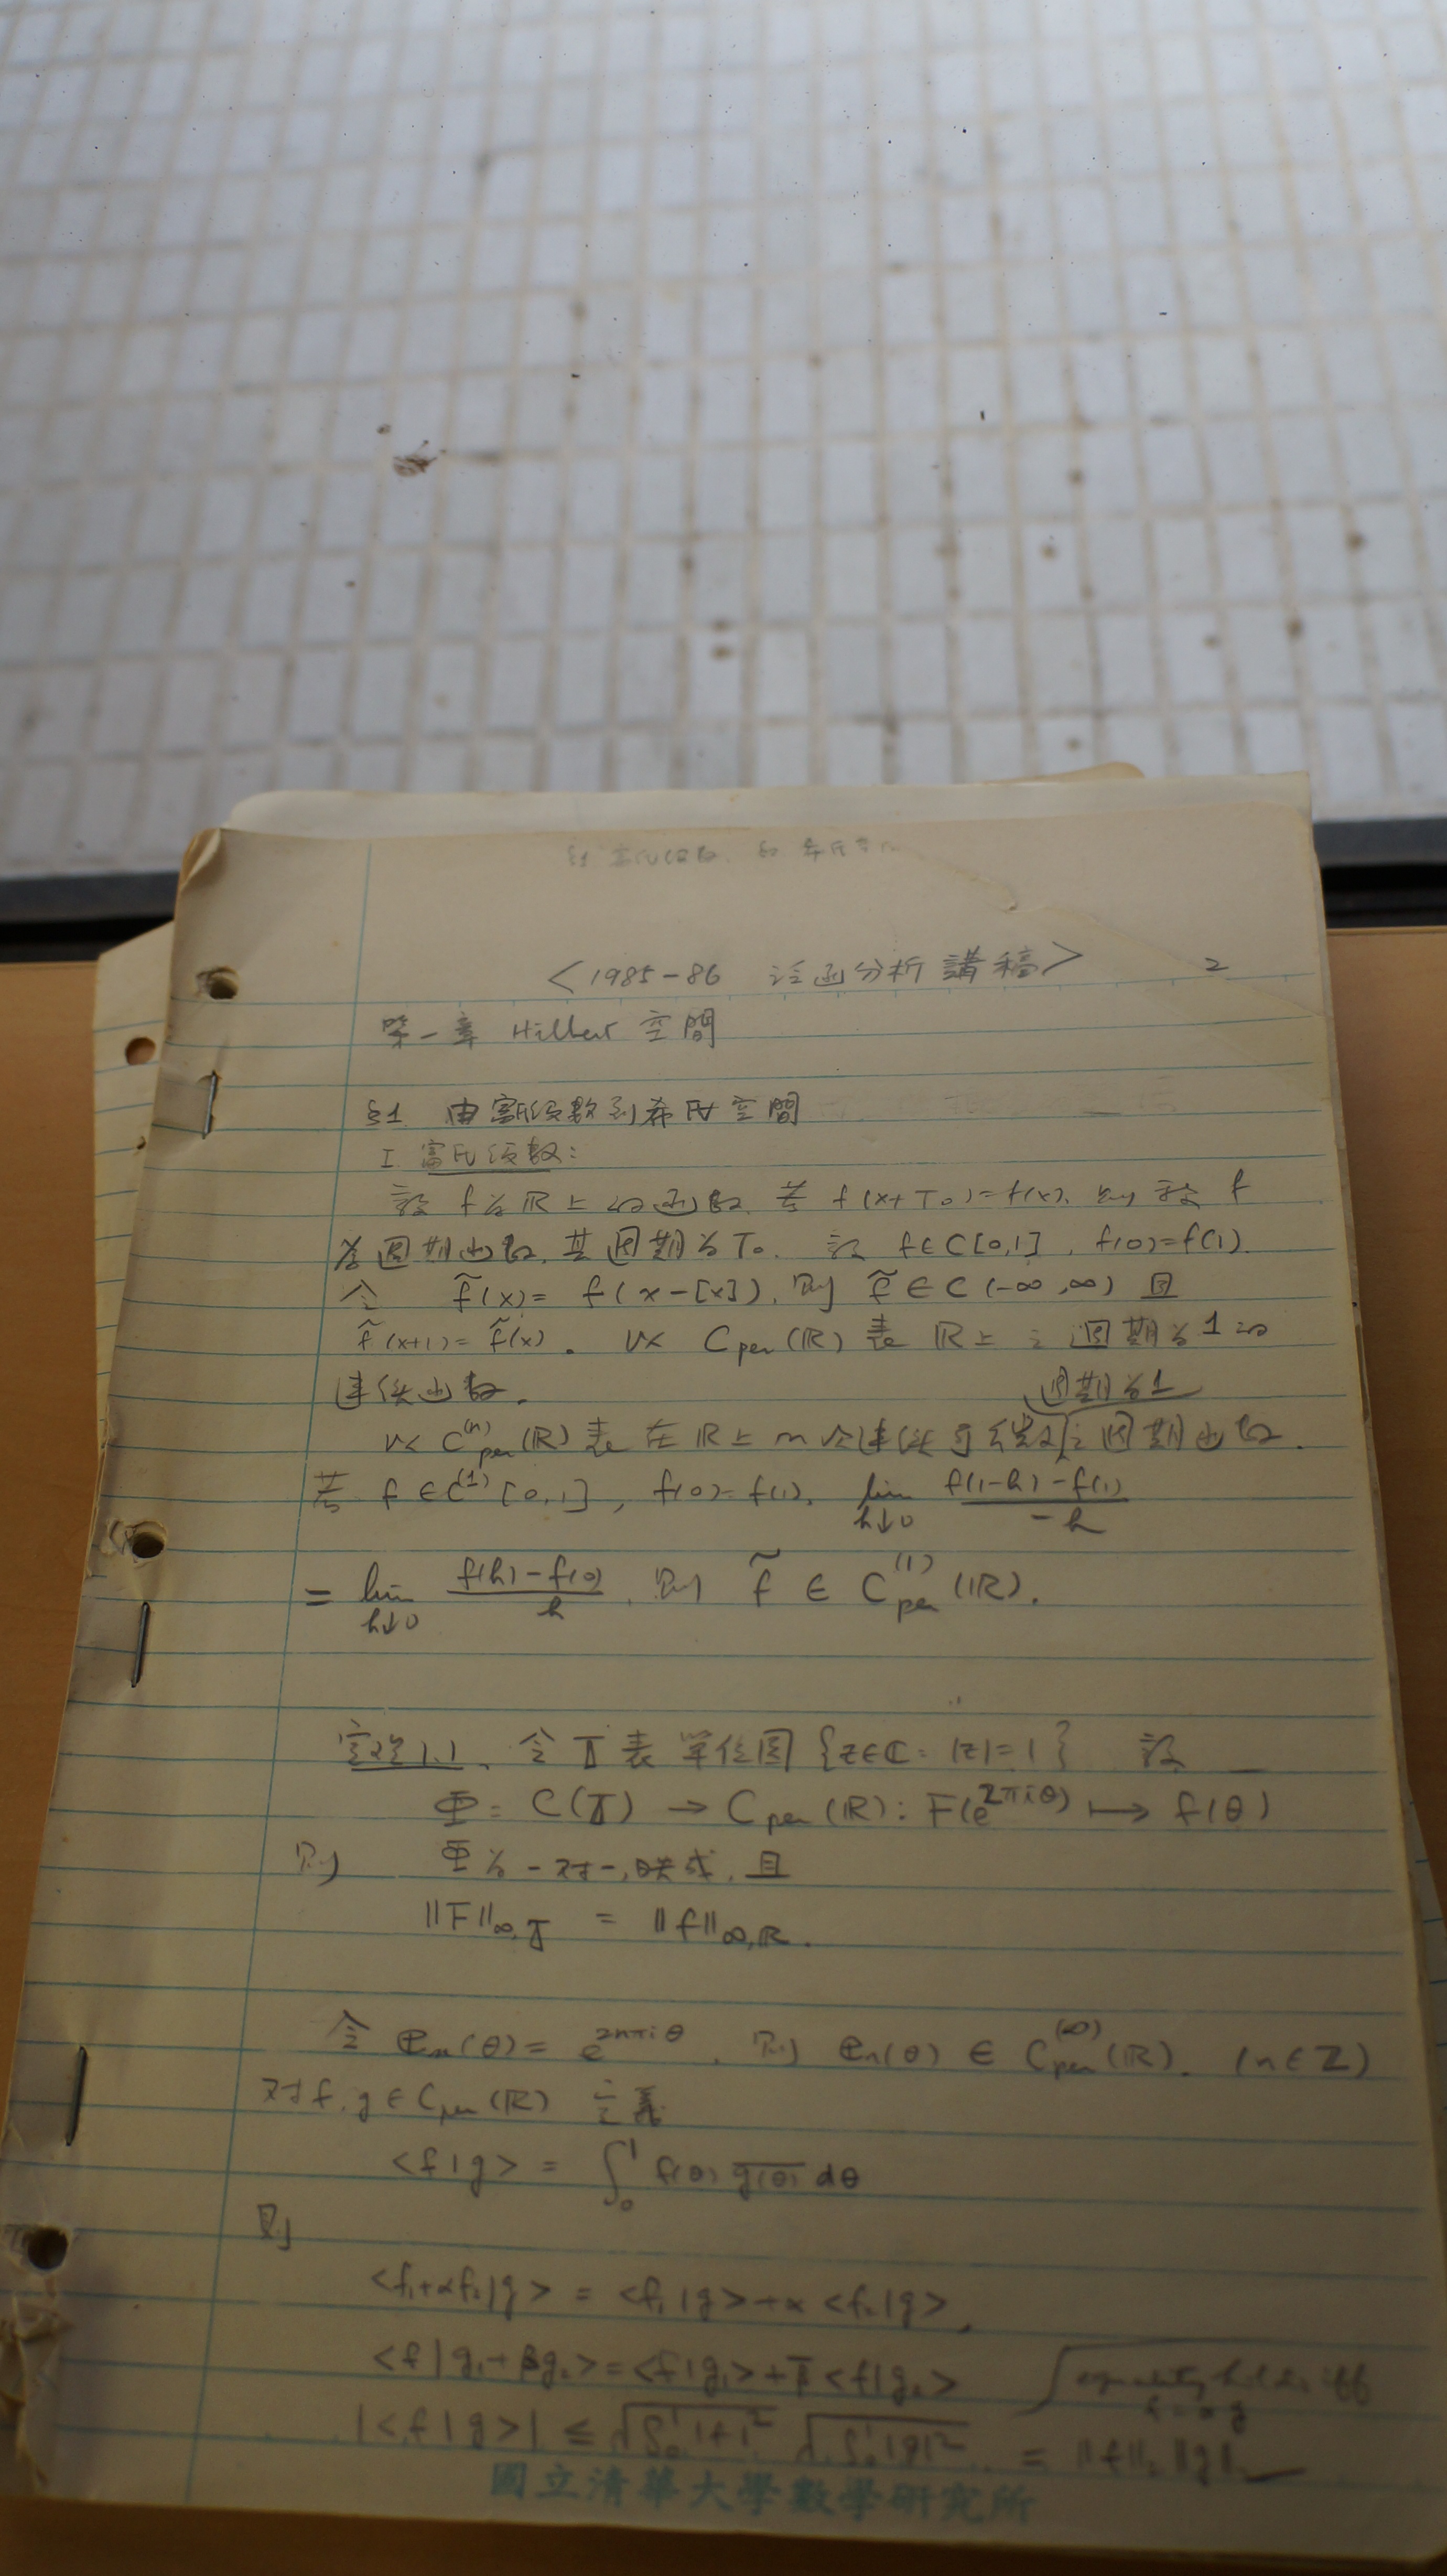 <1985-86 泛函分析講稿> 2
第一章 Hilbert 空間
§1 由富氏级数到希氏空間
I 富氏级数:
設 f 为 ℝ 上的函数, 若 f(x+T₀)=f(x), 则称 f
为週期函数, 其週期为 T₀. 設 f∈C[0,1], f(0)=f(1).
令 f̃(x)= f(x-[x]), 则 f̃ ∈ C(-∞,∞) 且
f̃(x+1)= f̃(x). 以 C_per(ℝ) 表 ℝ 上之週期为1的
連续函数.
週期为1
以 C^(n)_per(ℝ) 表在 ℝ 上 n 次連续可微之週期函数.
若 f ∈ C^(1)[0,1], f(0)=f(1), lim_{h↓0} (f(1-h)-f(1))/(-h)
= lim_{h↓0} (f(h)-f(0))/h, 则 f̃ ∈ C^(1)_per(ℝ).
定理1.1. 令 𝕋 表單位圆 {z∈ℂ: |z|=1} 設
Φ: C(𝕋) → C_per(ℝ): F(e^{2πiθ}) ↦ f(θ)
则 Φ 为一对一, 映成, 且
‖F‖_{∞,𝕋} = ‖f‖_{∞,ℝ}.
令 e_n(θ)= e^{2nπiθ}, 则 e_n(θ) ∈ C^(∞)_per(ℝ). (n∈ℤ)
对 f,g ∈ C_per(ℝ) 定義
<f|g> = ∫₀¹ f(θ) \overline{g(θ)} dθ
则
<f₁+αf₂|g> = <f₁|g>+α<f₂|g>,
<f|g₁+βg₂>=<f|g₁>+β̄<f|g₂>
equality holds iff
|<f|g>| ≤ √(∫₀¹|f|²) √(∫₀¹|g|²) = ‖f‖₂‖g‖₂
國立清華大學數學研究所